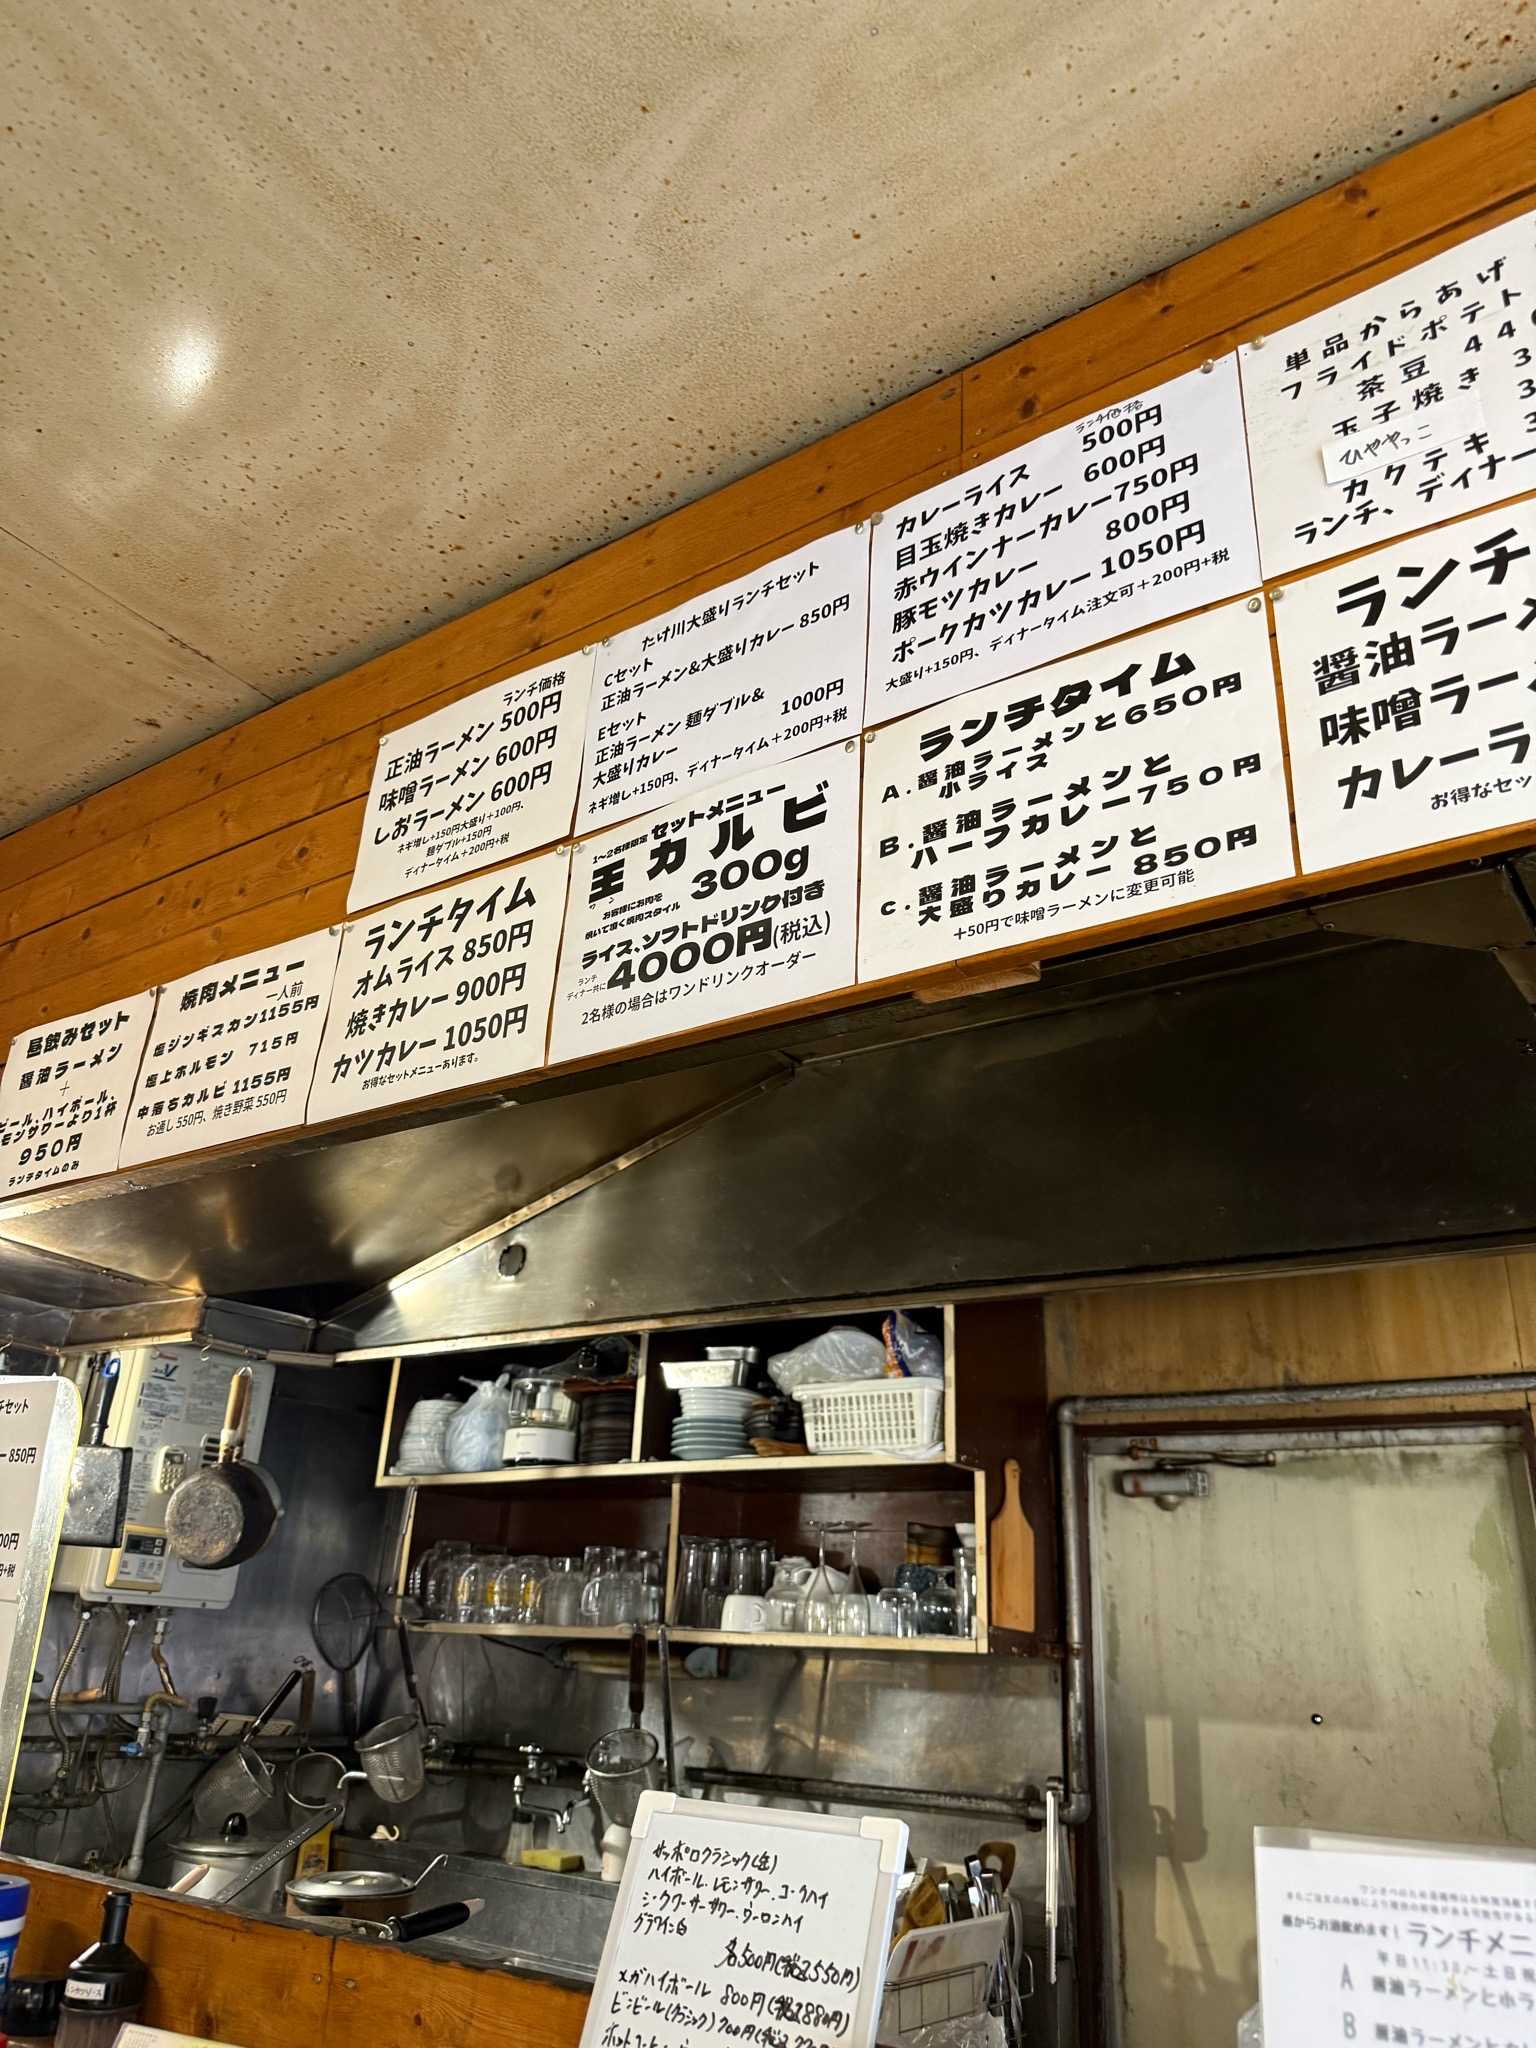 単品からあげ
フライドポテト
茶豆 44
玉子焼き 3
ひややっこ
カクテキ 3
ランチ、ディナー
ランチ価格
カレーライス 500円
目玉焼きカレー 600円
赤ウインナーカレー750円
豚モツカレー 800円
ポークカツカレー 1050円
大盛り+150円、ディナータイム注文可+200円+税
たけ川大盛りランチセット
Cセット
正油ラーメン&大盛りカレー 850円
Eセット
正油ラーメン 麺ダブル&
大盛りカレー 1000円
ネギ増し+150円、ディナータイム+200円+税
ランチ価格
正油ラーメン 500円
味噌ラーメン 600円
しおラーメン 600円
ネギ増し+150円大盛り+100円、
麺ダブル+150円
ディナータイム+200円+税
昼飲みセット
醤油ラーメン
+
ビール、ハイボール、
モンサワーより1杯
950円
ランチタイムのみ
焼肉メニュー
一人前
塩ジンギスカン1155円
塩上ホルモン 715円
中落ちカルビ 1155円
お通し 550円、焼き野菜 550円
ランチタイム
オムライス 850円
焼きカレー 900円
カツカレー 1050円
お得なセットメニューあります。
1〜2名様限定 セットメニュー
王カルビ
ワン
お客様にお肉を
焼いて頂く焼肉スタイル 300g
ライス、ソフトドリンク付き
ランチ
ディナー共に 4000円(税込)
2名様の場合はワンドリンクオーダー
ランチタイム
A.醤油ラーメンと650円
小ライス
B.醤油ラーメンと
ハーフカレー750円
C.醤油ラーメンと
大盛りカレー 850円
+50円で味噌ラーメンに変更可能
ランチ
醤油ラー
味噌ラー
カレーラ
お得なセッ
チセット
ー 850円
00円
円+税
サッポロクラシック(缶)
ハイボール、レモンサワー、コークハイ
シークワーサーサワー、ウーロンハイ
グラスワイン白
各500円(税込550円)
メガハイボール 800円(税込880円)
ビンビール(クラシック) 700円(税込77
昼からお酒飲めます! ランチメニ
平日11:30〜土日祝
A 醤油ラーメンと小ラ
B 醤油ラーメンと